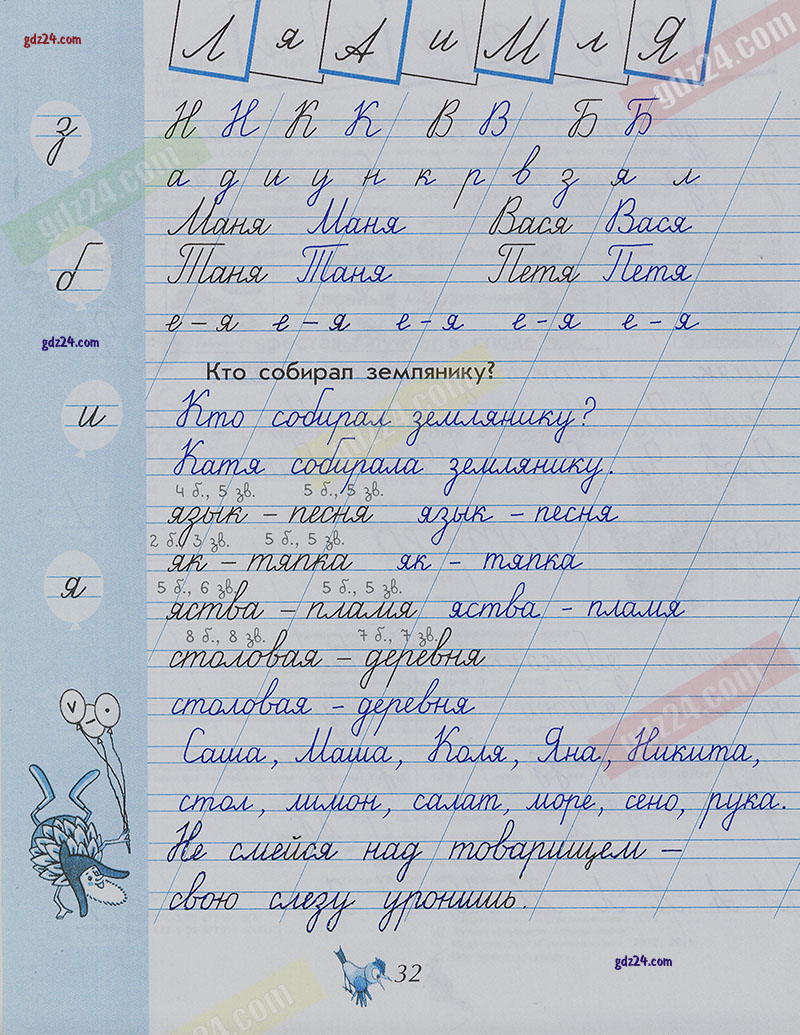 gdz24.com
Л я А и М л Я
gdz24.com
з
Н Н К К В В Б Б
а д и у н к р в з я л
gdz24.com
Маня Маня Вася Вася
б
Таня Таня Петя Петя
gdz24.com
е – я е – я е – я е – я е – я
Кто собирал землянику?
и
Кто собирал землянику?
gdz24.com
Катя собирала землянику.
4 б., 5 зв. 5 б., 5 зв.
язык – песня язык – песня
2 б., 3 зв. 5 б., 5 зв.
як – тяпка як – тяпка
я
5 б., 6 зв. 5 б., 5 зв.
яства – пламя яства – пламя
8 б., 8 зв. 7 б., 7 зв.
столовая – деревня
столовая – деревня
gdz24.com
Саша, Маша, Коля, Яна, Никита,
стол, лимон, салат, море, сено, рука.
Не смейся над товарищем –
свою слезу уронишь.
32
gdz24.com
gdz24.com